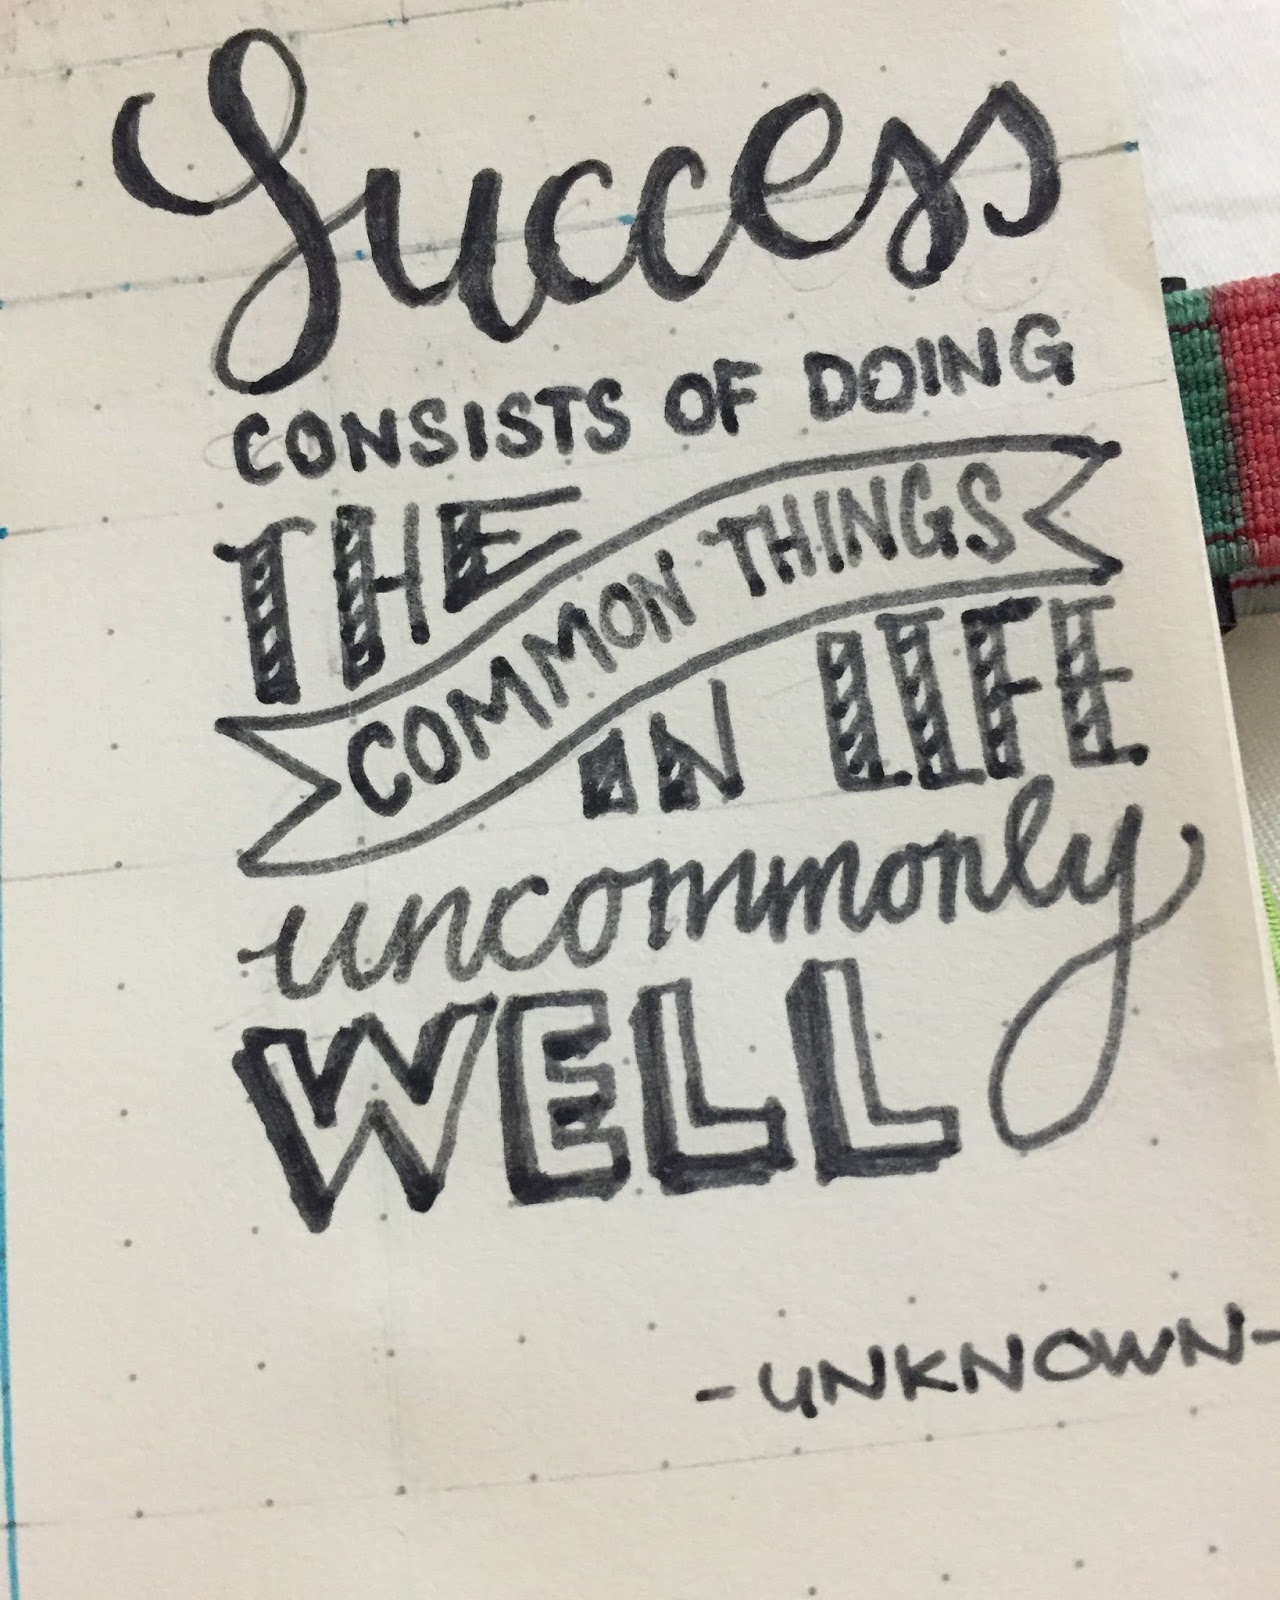 Success
CONSISTS OF DOING
THE
COMMON THINGS
IN LIFE
uncommonly
WELL
-UNKNOWN-